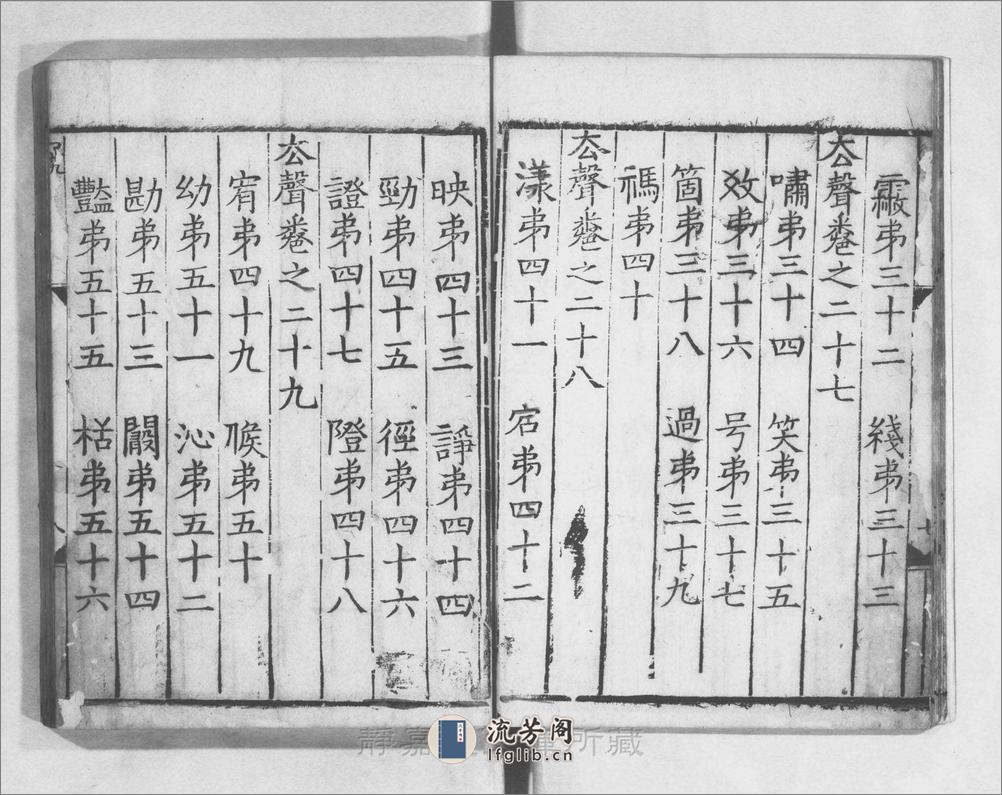 霰弟三十二 綫弟三十三
厺聲卷之二十七
嘯弟三十四 笑弟三十五
效弟三十六 号弟三十七
箇弟三十八 過弟三十九
禡弟四十
厺聲卷之二十八
漾弟四十一 宕弟四十二
映弟四十三 諍弟四十四
勁弟四十五 徑弟四十六
證弟四十七 隥弟四十八
厺聲卷之二十九
宥弟四十九 候弟五十
幼弟五十一 沁弟五十二
勘弟五十三 闞弟五十四
豔弟五十五 栝弟五十六
八
流芳阁
lfglib.cn
靜嘉 所藏